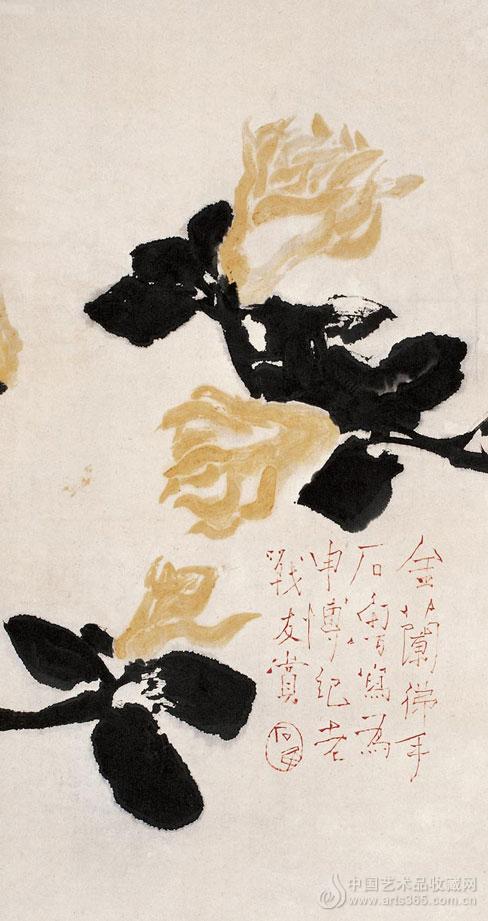 金蘭佛手
石魯寫為
申博纪老
戰友賞
石魯
中国艺术品收藏网
www.arts365.com.cn